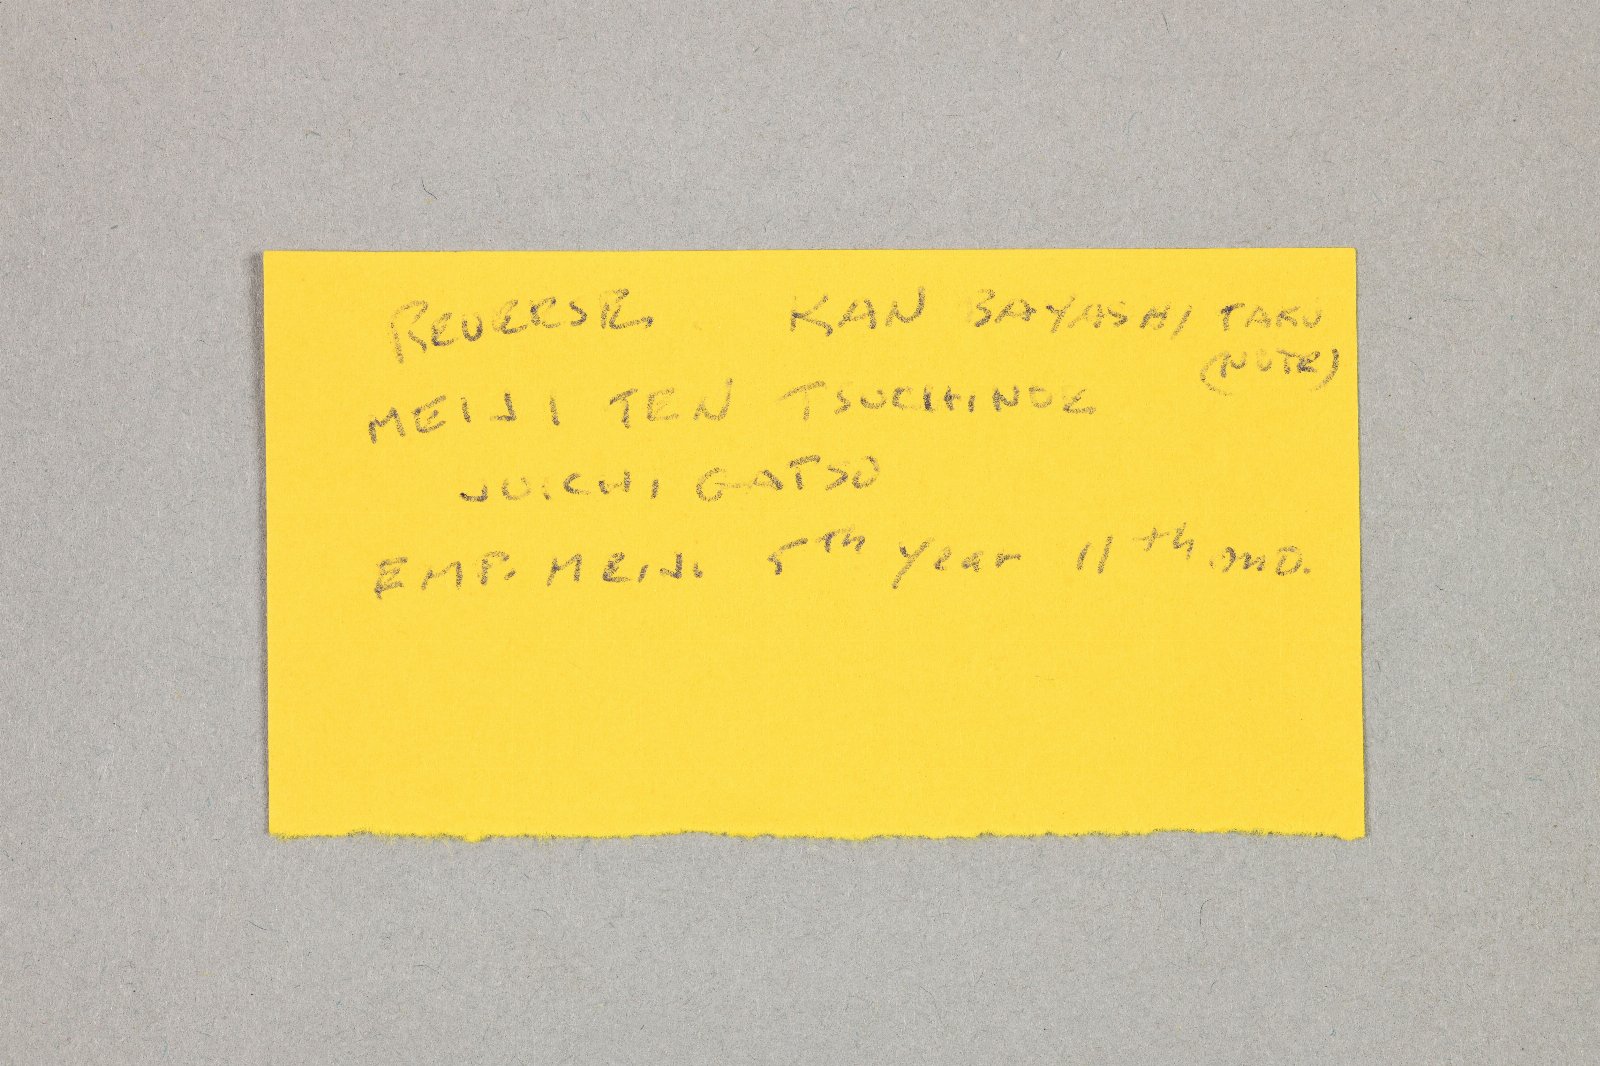 REVERSE KAN BAYASHI TAKU
(NOTE)
MEIJI TEN TSUCHINOE
JUICHI GATSU
EMP. MEIJI 5th Year 11th mo.